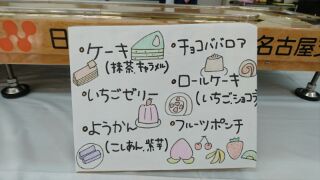 日
名古屋
・ケーキ
(抹茶、キャラメル)
・いちごゼリー
・ようかん
(こしあん、紫芋)
・チョコババロア
・ロールケーキ
(いちご、ショコラ
・フルーツポンチ